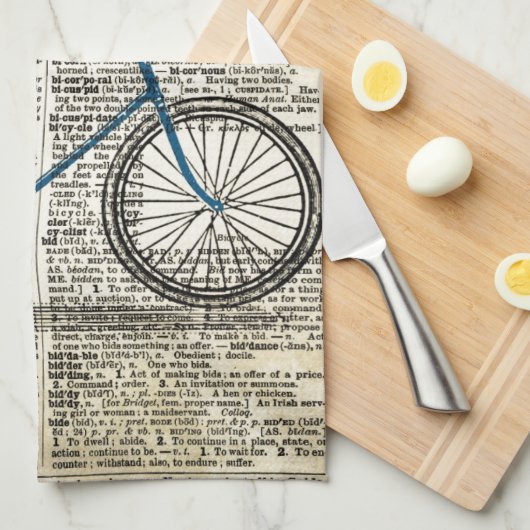 horned; crescentlike. — bi-cor'nous (bī-kôr'nŭs), a.
bi-cor'po-ral (bī-kôr'pō-răl), a. Having two bodies.
bi-cus'pid (bī-kŭs'pĭd), a. [see BI-, 1; CUSPIDATE.] Hav-
ing two points, Human Anat. Either
of the two double-pointed teeth side of each jaw.
bi-cus'pi-date dāt),
bi'cy-cle (bī' — Gr. κυκλος circle, wheel.]
A light vehicle
ing two wheels, one
behind the other
and propelled by
the feet acting on
treadles. —
-CLED (-k'ld); -CLING
(-klĭng). To ride a
bicycle. — bi'cy-
cler (-klẽr), n. — bi'cy-
clist (-klĭst), n.
Bicycle.
bid (bĭd), v. t.
BADE (băd), BID, EAD, p. p. BIDDEN (bĭd''n), BID; p. pr.
& vb. n. BIDDING. [AS. biddan, but early confused with
AS. bēodan, to offer, command. Bid now has the form of
ME. bidden to ask, but the meaning of ME.
1. To offer for a thing
put up at auction), or to take certain price, as for work
to be done under a contract). To order, command
2. to come. To express utter, as
a wish, a greeting, etc. — Syn. propose
direct, charge, enjoin. — v. i. To make a bid. — n. Act
of one who bids something; an offer. — bid'dance (-ăns), n.
bid'da-ble (bĭd'ȧ-b'l), a. Obedient; docile.
bid'der (bĭd'ẽr), n. One who bids.
bid'ding, n. 1. Act of making bids; an offer of a price.
2. Command; order. 3. An invitation or summons.
bid'dy (bĭd'ĭ), n.; pl. -DIES (-ĭz). A hen or chicken.
bid'dy, n. [for Bridget, fem. proper name.] An Irish serv-
ing girl or woman; a maidservant. Colloq.
bide (bīd), v. i.; pret. BODE (bōd); pret. & p. p. BID'ED (bīd'-
ĕd; 24); p. pr. & vb. n. BID'ING (bīd'ĭng). [AS. bīdan.]
1. To dwell; abide. 2. To continue in a place, state, or
action; continue to be. — v. t. 1. To wait for. 2. To en-
counter; withstand; also, to endure; suffer.